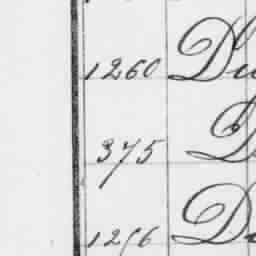 1260 Du
375 D
1256 Du